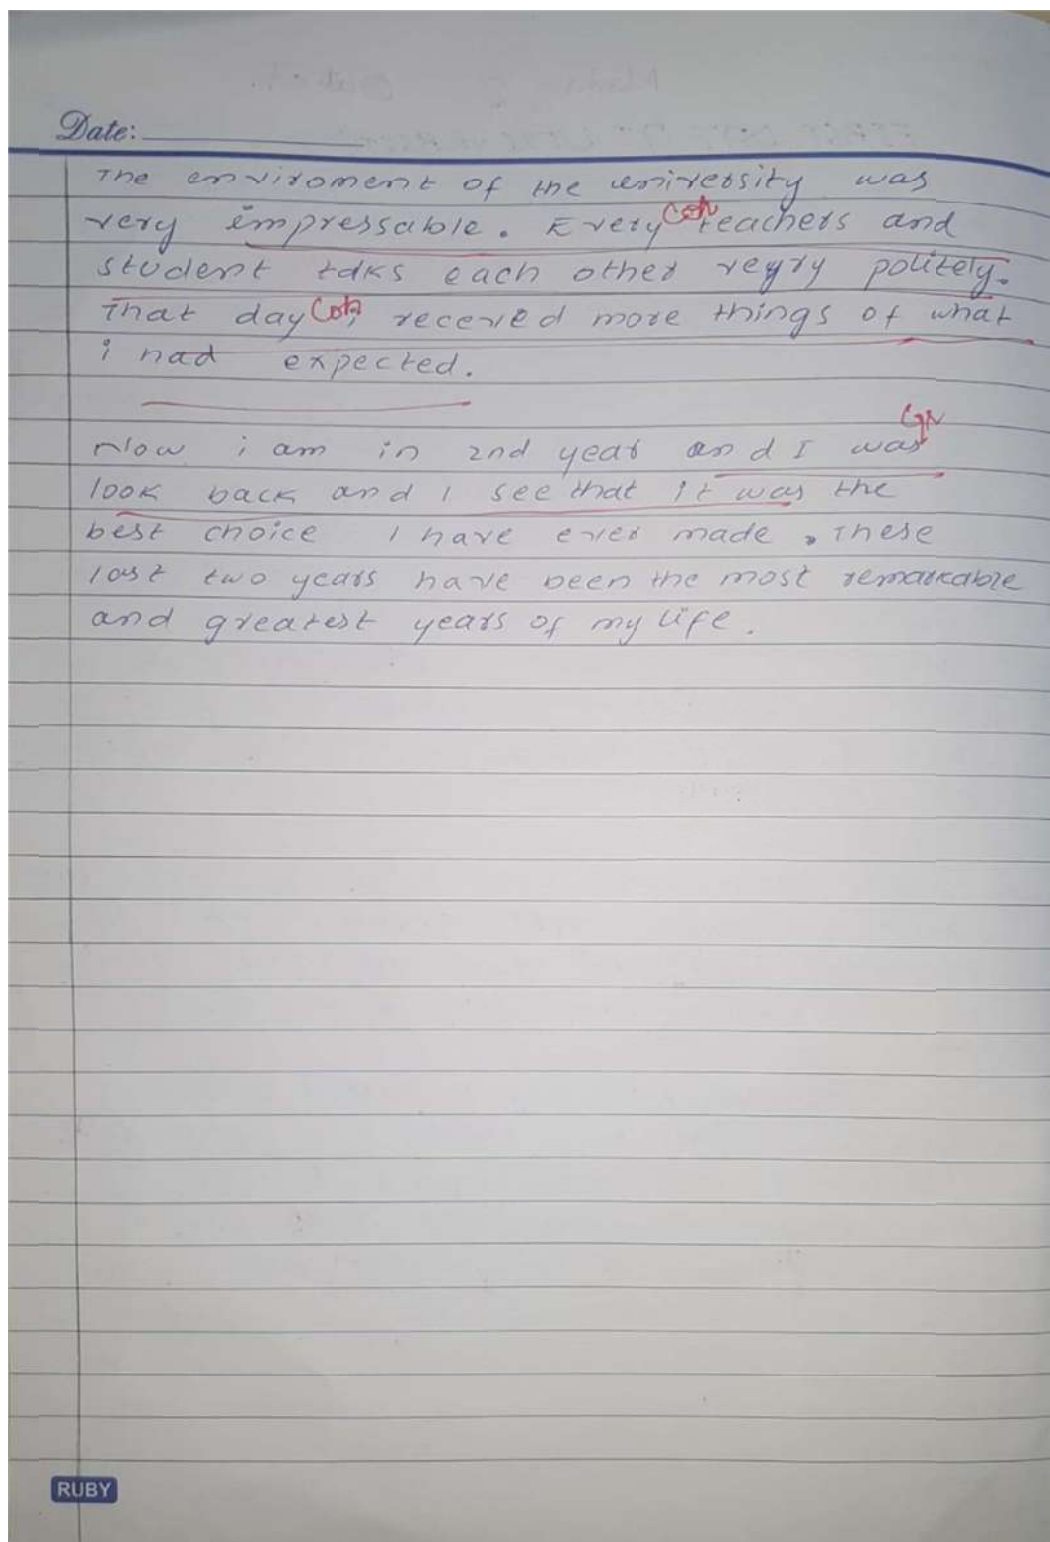 Date:
The enviroment of the university was
very impressable. Every Coh teachers and
student talks each other veyry politely.
That day Coh i received more things of what
i had expected.
Gr
Now i am in 2nd year and I was
look back and I see that it was the
best choice I have ever made. These
last two years have been the most remarkable
and greatest years of my life.
RUBY